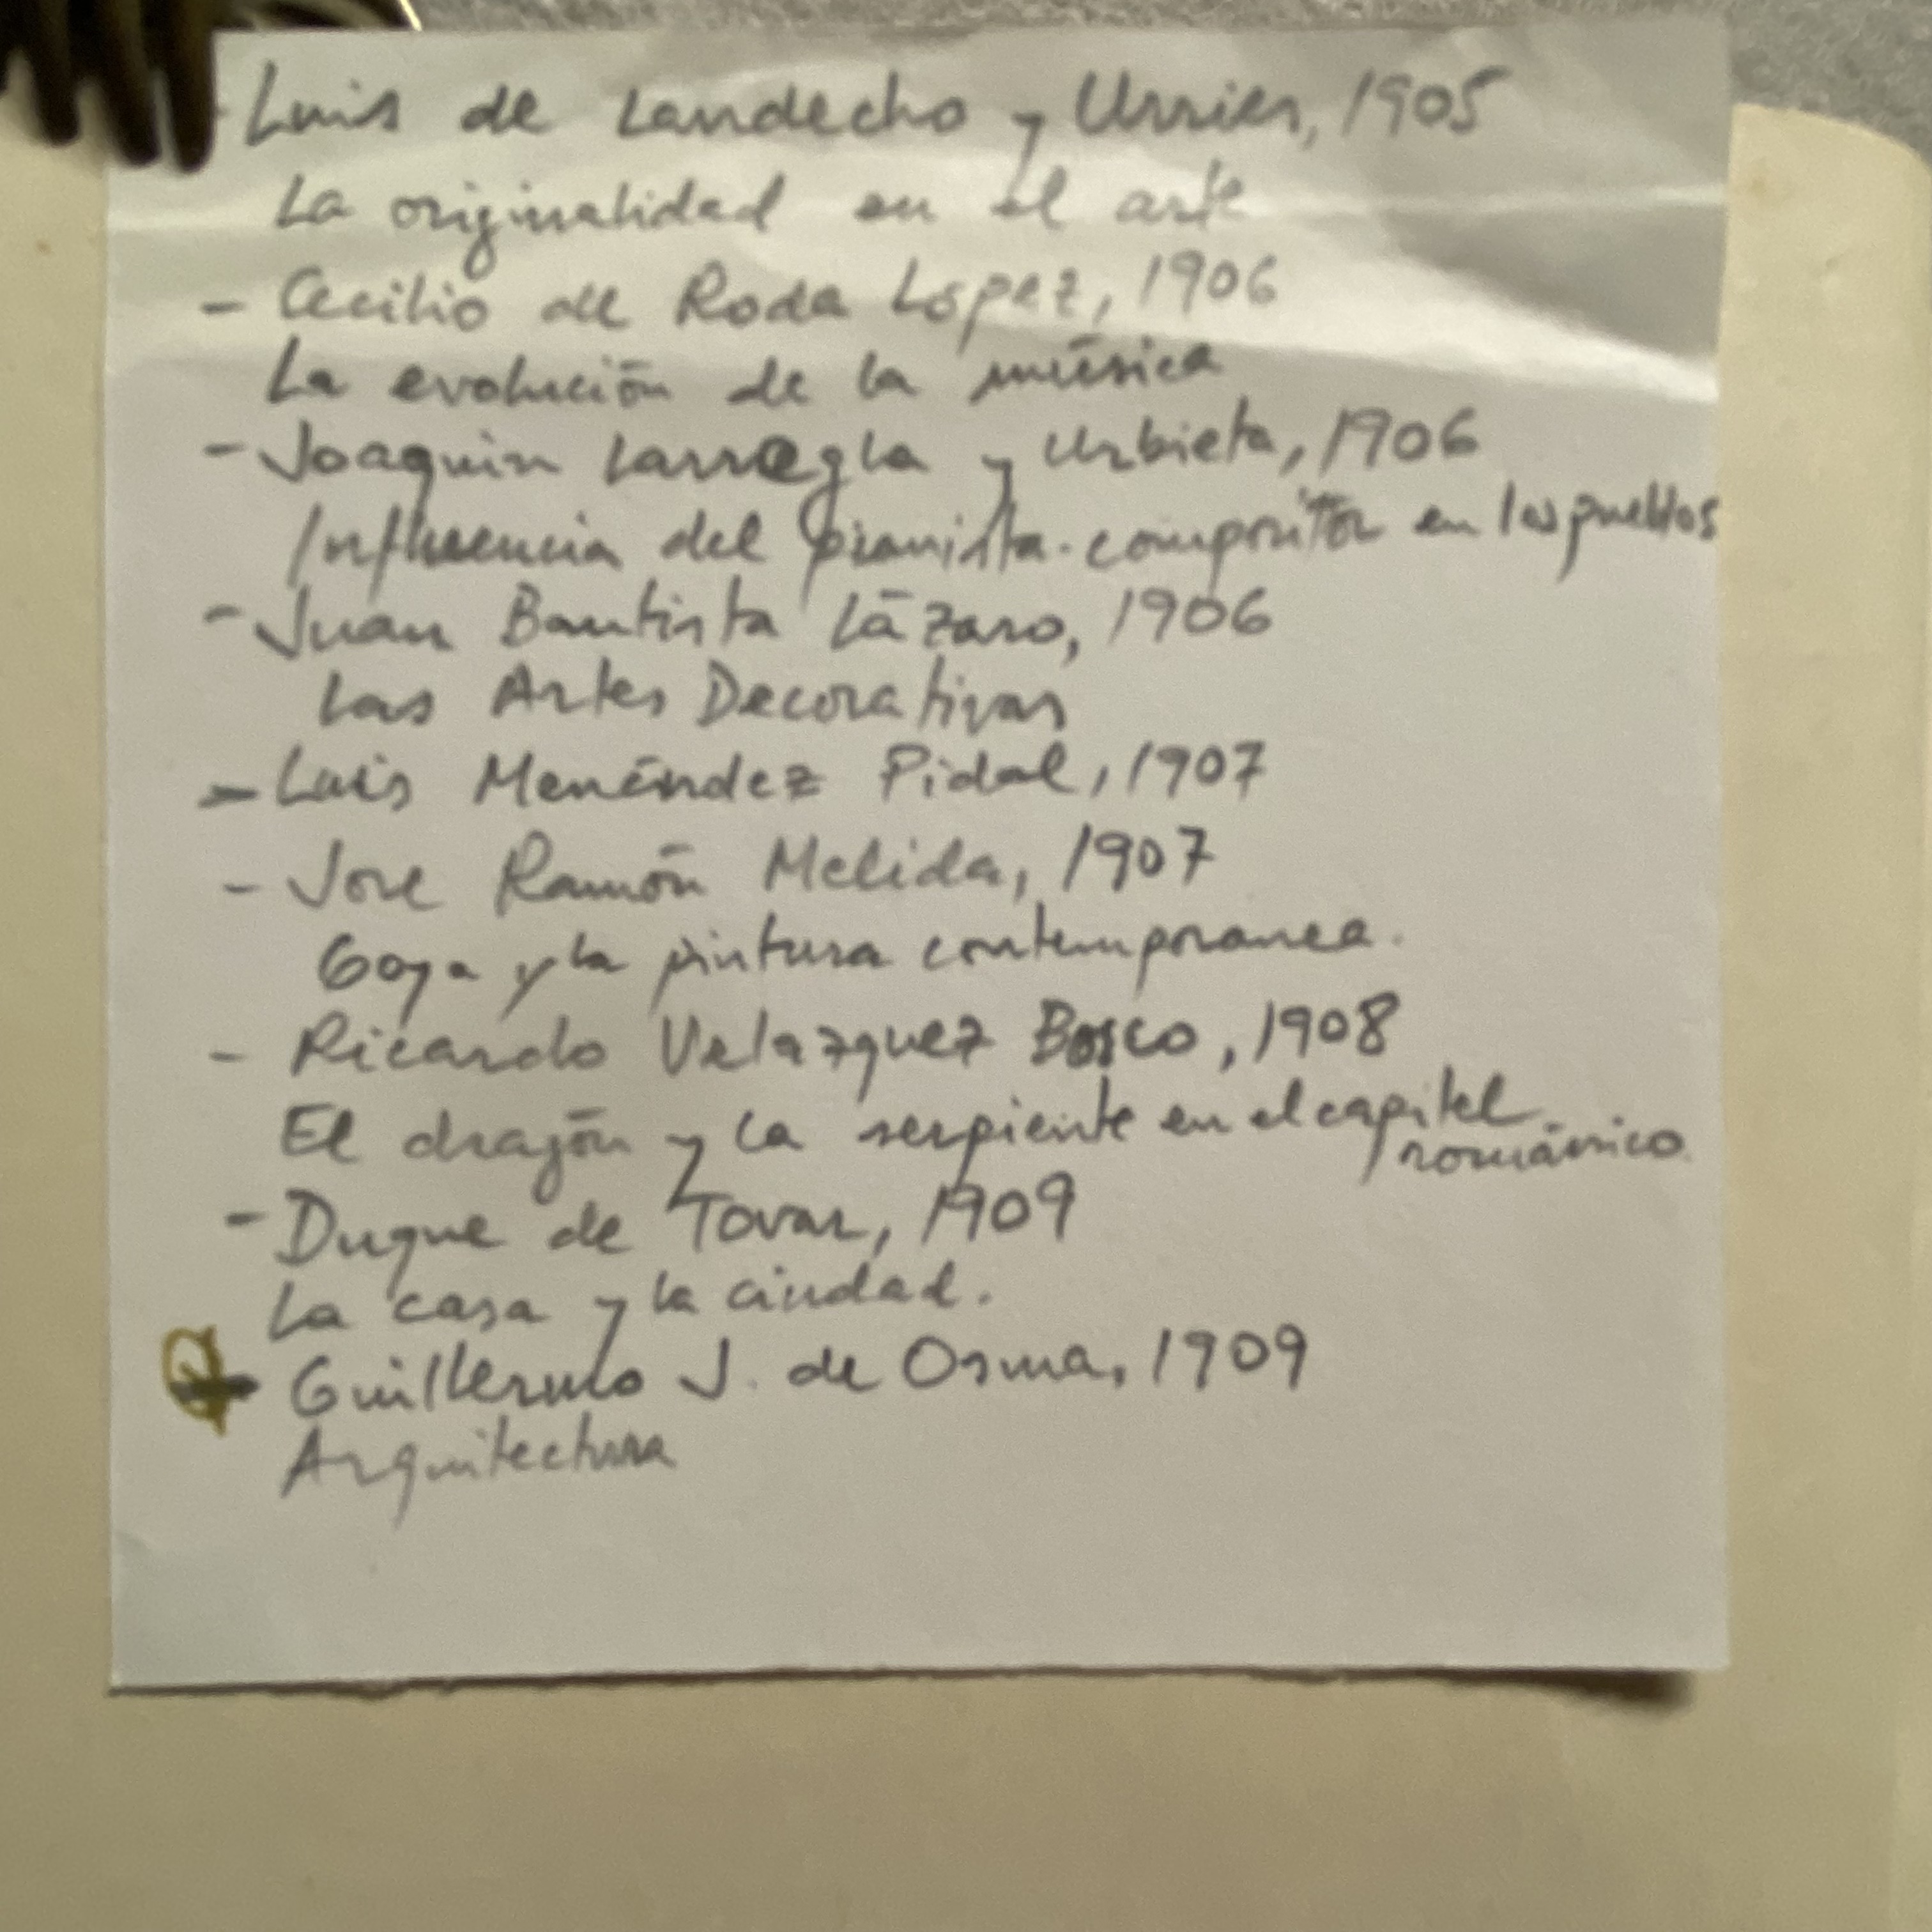 - Luis de Landecho y Urries, 1905
La originalidad en el arte
- Cecilio de Roda Lopez, 1906
La evolución de la música
- Joaquin Larregla y Urbieta, 1906
Influencia del pianista-compositor en los pueblos
- Juan Bautista Lázaro, 1906
Las Artes Decorativas
- Luis Menéndez Pidal, 1907
- Jose Ramón Melida, 1907
Goya y la pintura contemporanea.
- Ricardo Velazquez Bosco, 1908
El dragón y la serpiente en el capitel
románico
- Duque de Tovar, 1909
La casa y la ciudad.
- Guillermo J. de Osma, 1909
Arquitectura